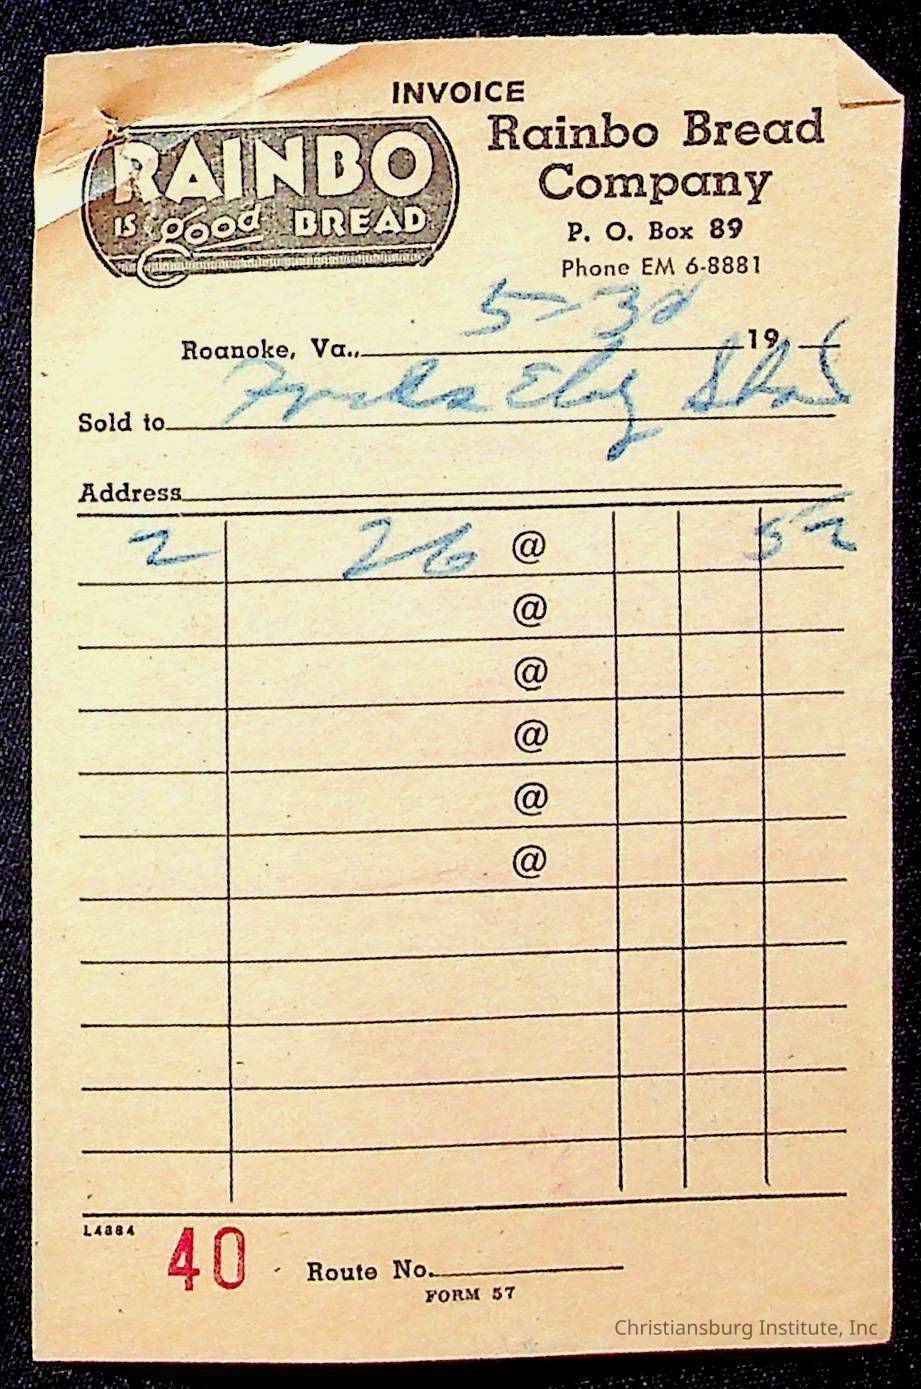 INVOICE
RAINBO
IS good BREAD
Rainbo Bread
Company
P. O. Box 89
Phone EM 6-8881
5-30
Roanoke, Va., 19
Sold to
Address
2 26 @ 52
@
@
@
@
@
L4884
40
Route No.
FORM 57
Christiansburg Institute, Inc